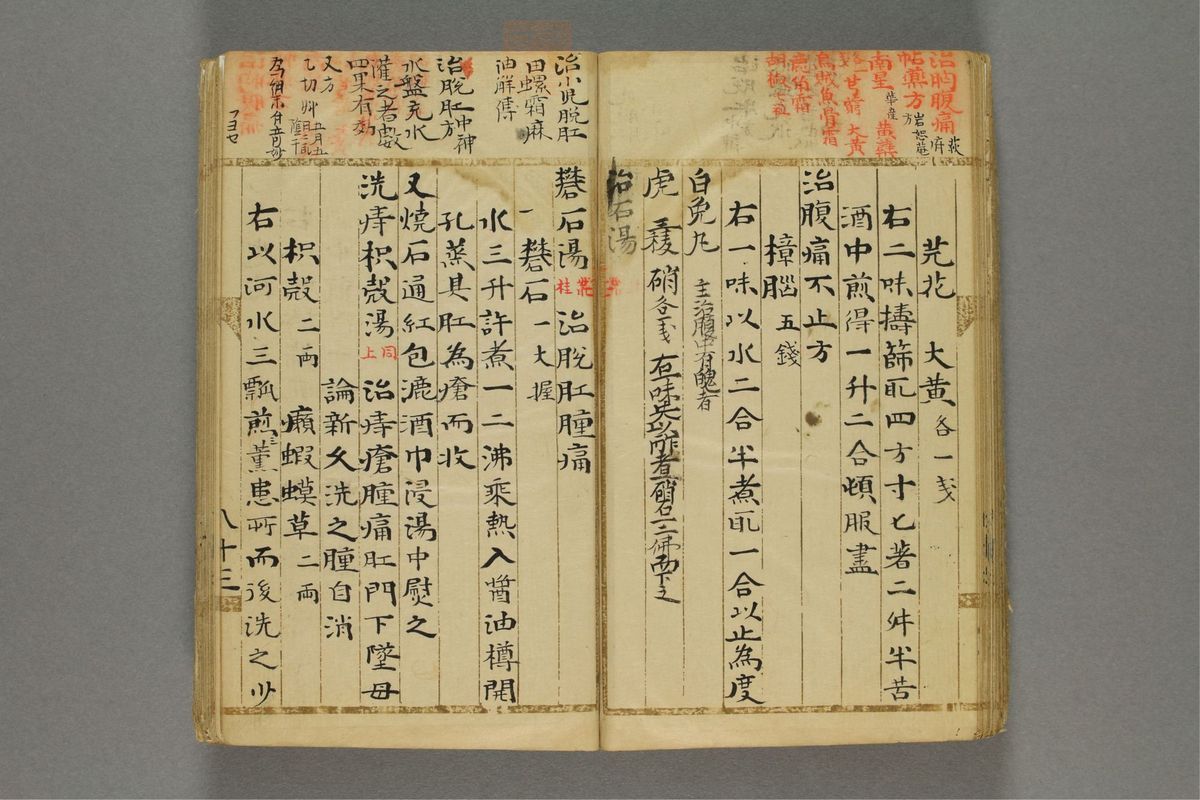 治胸腹痛
帖藥方
南星 黄蘗
大黄
烏賊魚骨霜
胡椒七粒
芫花 大黄各一戔
右二味擣篩取四方寸匕著二舛半苦
酒中煎得一升二合頓服盡
治腹痛不止方
樟腦五錢
右一味以水二合半煮取一合以止為度
白兔丸 主治腹中有醜者
虎
硝各戔
治石湯
治小児脱肛
田螺霜麻
油解傅
治脱肛中神
治脱肛方
水盤充水
灌之者數
四果有効
又方
乙切艸 五月五日取陰干
礬石湯 治脱肛腫痛
一 礬石一大握
水三升許煮一二沸乘熱入醤油樽開
孔蒸其肛為瘡而收
又燒石通紅包漉酒巾浸湯中熨之
洗痔枳殻湯 同上 治痔瘡腫痛肛門下墜毋
論新久洗之腫自消
枳殻二両 癩蝦蟆草二両
右以河水三瓢煎薫患所而後洗之少
八十三